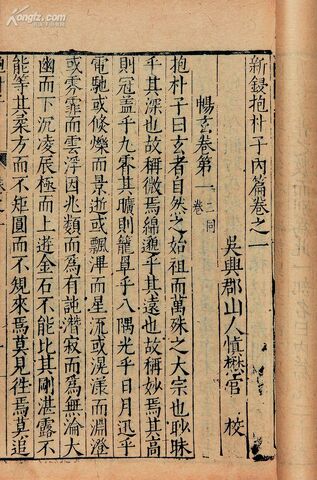 Kongfz.com
新鋟抱朴子內篇卷之一
吳興郡山人慎懋官 校
暢玄卷第一 二卷同
抱朴子曰玄者自然之始祖而萬殊之大宗也眇昧
乎其深也故稱微焉綿邈乎其遠也故稱妙焉其高
則冠蓋乎九霄其曠則籠罩乎八隅光乎日月迅乎
電馳或倏爍而景逝或飄滭而星流或滉漾而淵澄
或雰霏而雲浮因兆類而為有託潛寂而為無淪大
幽而下沉凌辰極而上遊金石不能比其剛湛露不
能等其柔方而不矩圓而不規來焉莫見徃焉莫追